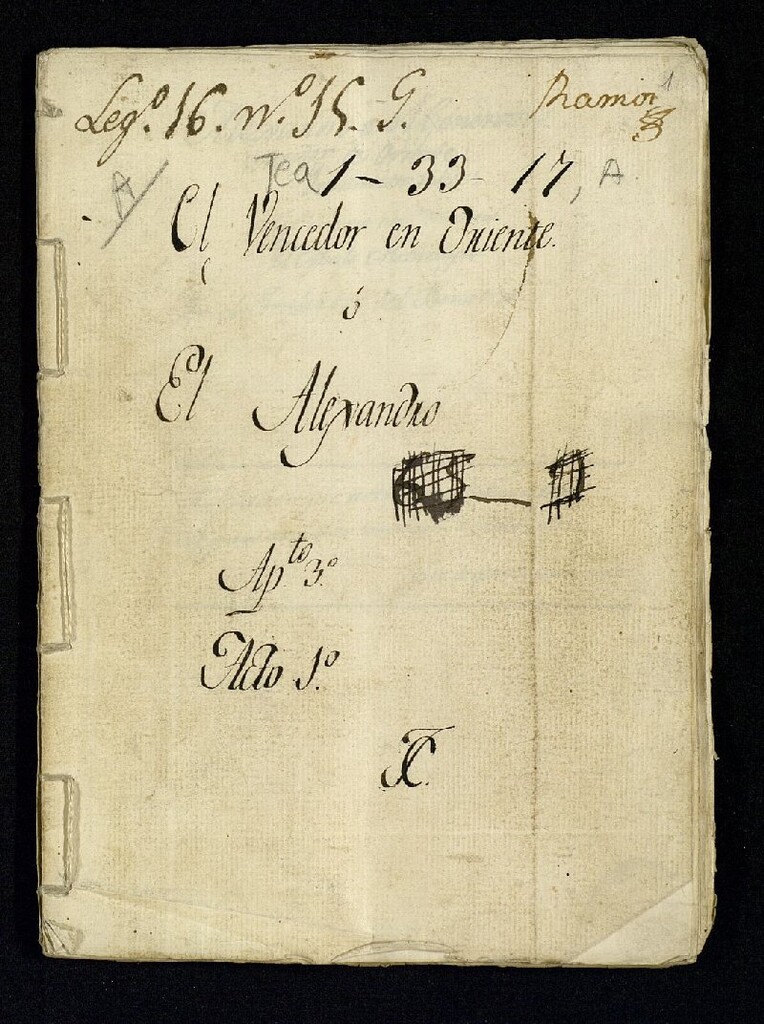 Leg.º 16. n.º 15. G.
Ramon
1
Tea 1-33-17, A
A
El Vencedor en Oriente.
ó
El Alexandro
Ap.to 3.º
Acto 1.º